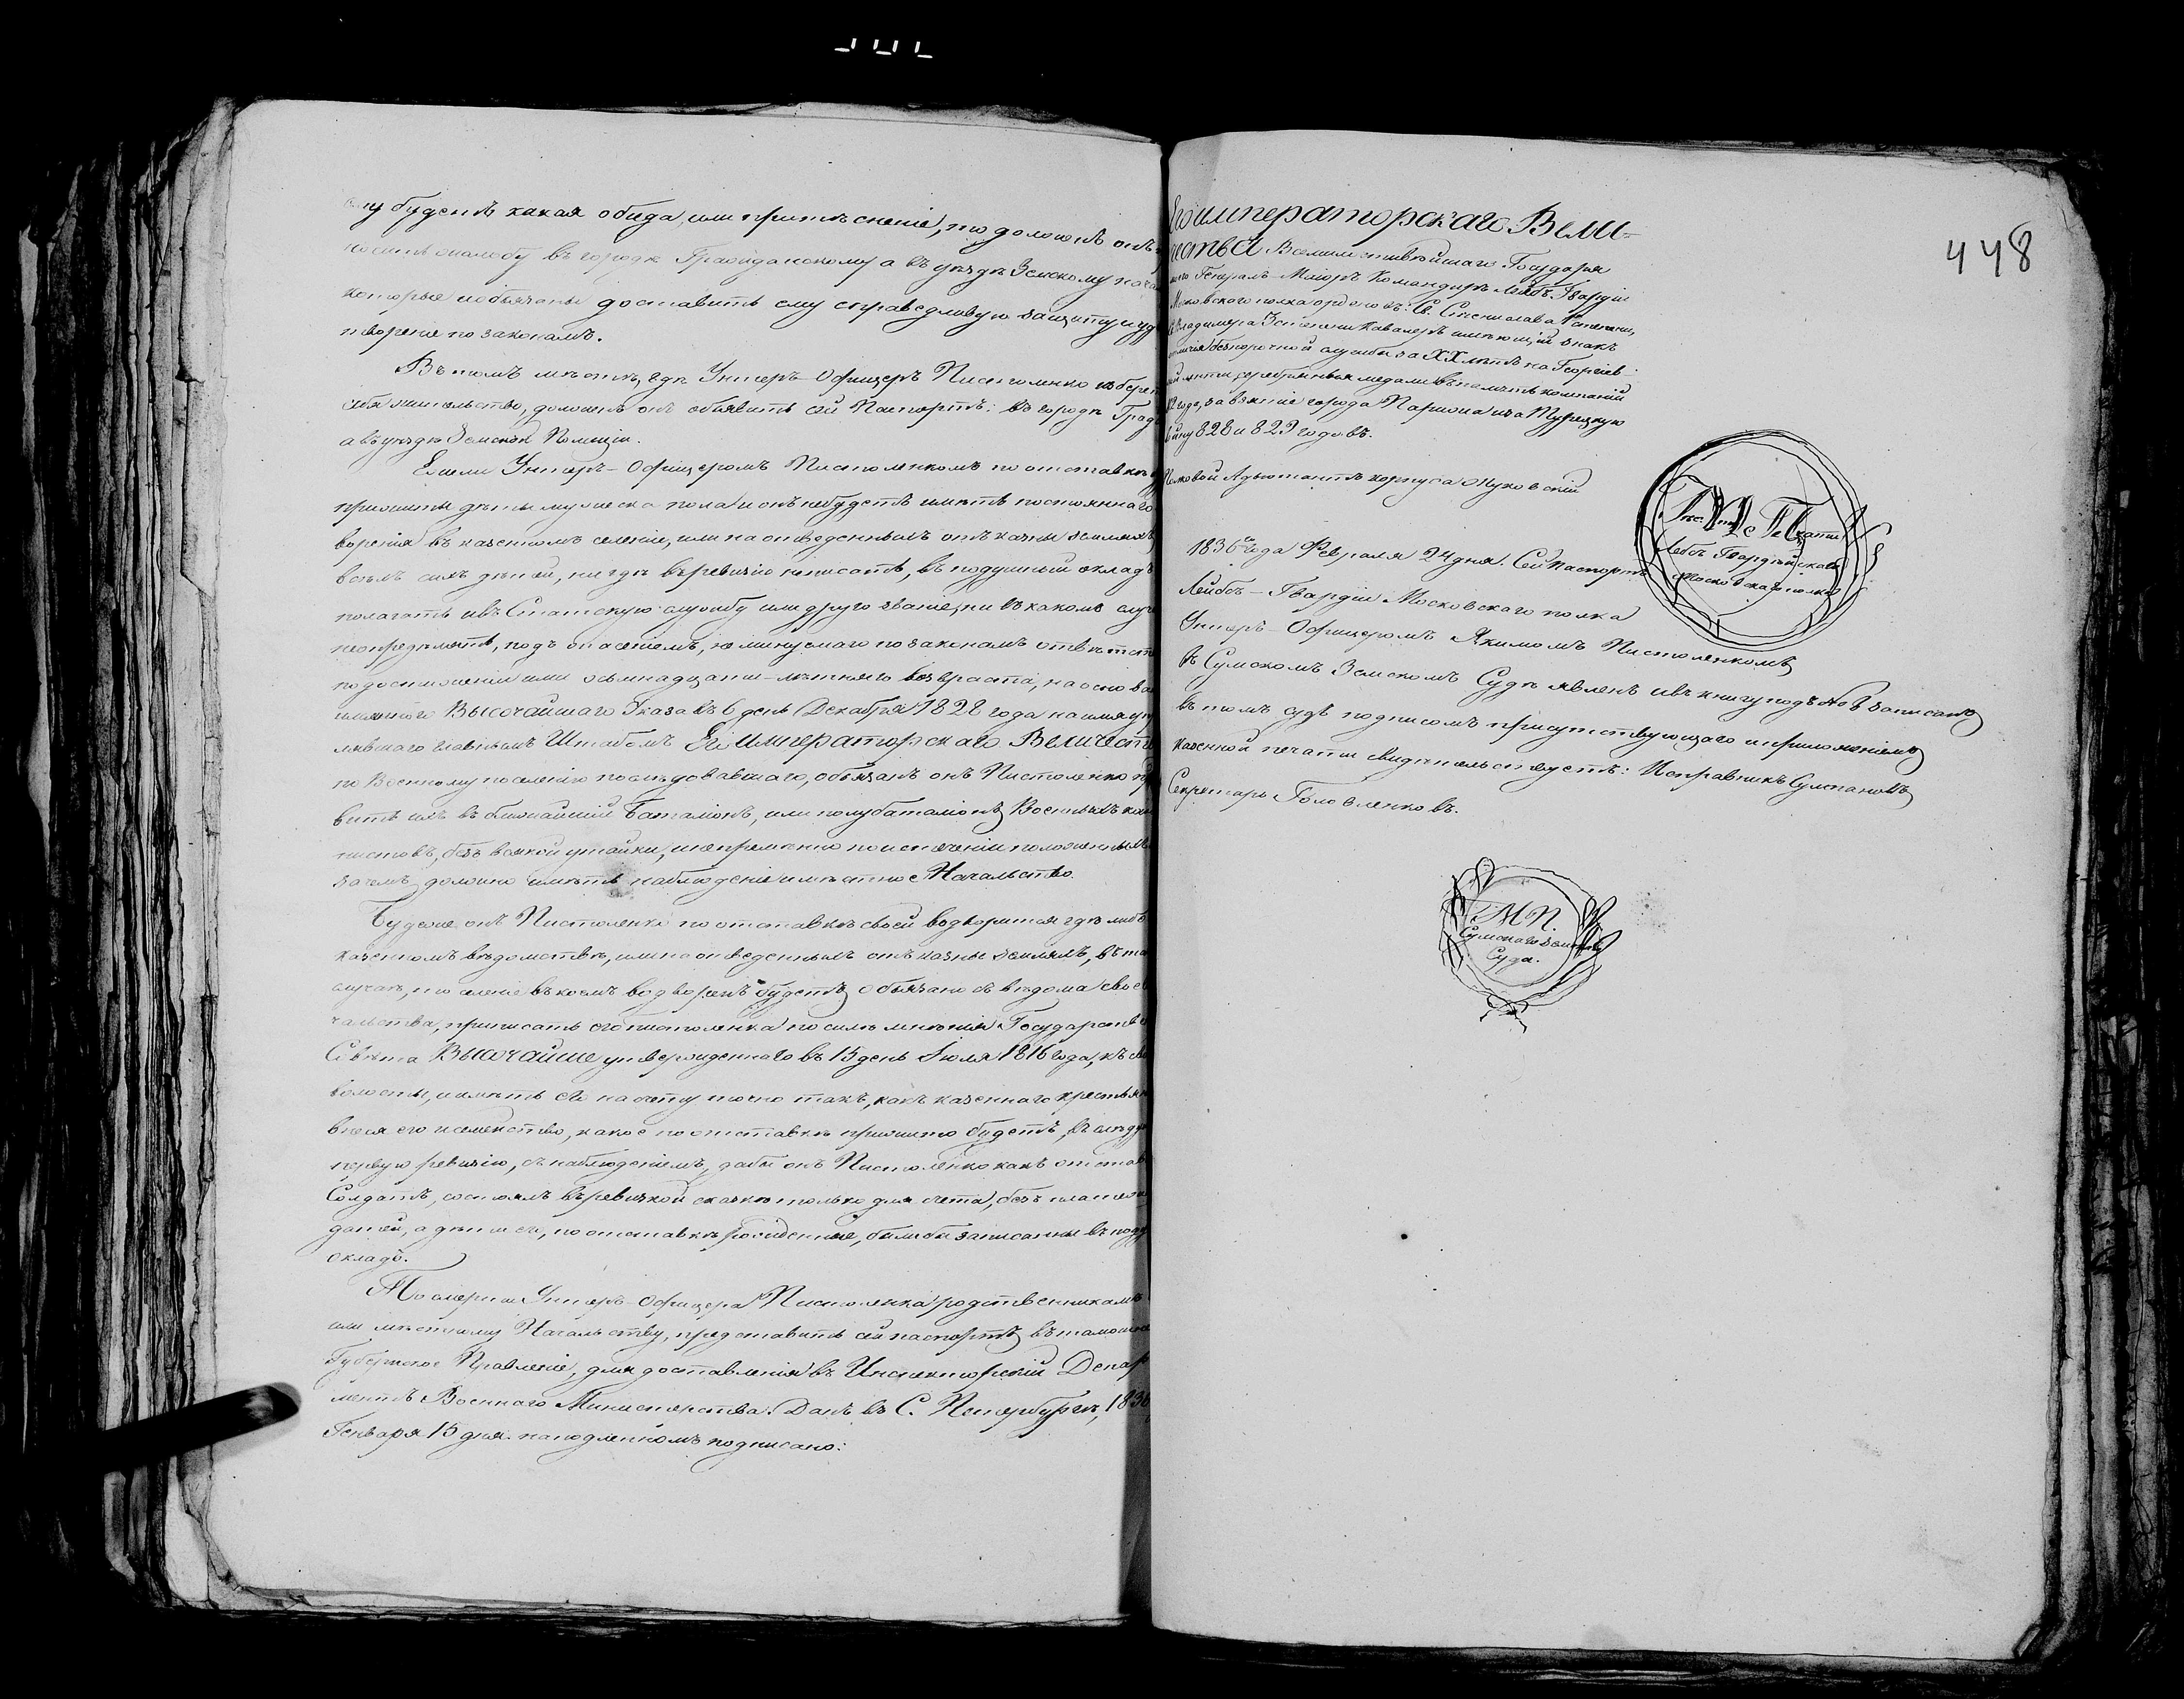 ему будетъ какая обида, или притѣсненіе, то долженъ онъ
носить жалобу въ городѣ Гражданскому а въ уѣздѣ Земскому нача
которые и обязаны доставить ему справедливую защиту и уд
творение по законамъ.
Въ томъ мѣстѣ, гдѣ Унтеръ-Офицеръ Пистоленко изберет
себѣ жительство, долженъ онъ объявить сей Паспортъ: въ городѣ Град
а въ уѣздѣ Земской Полиціи.
Ежели Унтеръ-Офицеромъ Пистоленкомъ по отставкѣ
прижиты дѣты мужеска пола и онъ небудетъ имѣть постояннаго
воренія въ казенномъ селеніе, или на отведенныхъ отъ казны земляхъ
всѣхъ сихъ дѣтей, нигдѣ въ ревизію неписать, въ подушный окладъ
полагать и въ Статскую службу или друго званіе, ни въ какомъ случ
неопредѣлять, подъ опасеніемъ, неминуемаго по законамъ отвѣтст
по достиженіи ими осьмнадцати-лѣтняго возраста, на основа
имяннаго Высочайшаго Указа въ 6 день Декабря 1828 года на имя уп
лявшаго главнымъ Штабомъ Его Императорскаго Величеств
по Военному поселенію послѣдовавшаго, обязанъ онъ Пистоленко пр
вить ихъ въ ближайшій Баталіонъ, или полубаталіонъ Военныхъ кан
нистовъ, безъ всякой утайки, и непременно по истеченіи положенныхъ
зачемъ должно имѣть наблюденіе и мѣстное Начальство.
Будеже онъ Пистоленко по отставкѣ своей водворится гдѣ либо
казенномъ вѣдомствѣ, или на отведенныхъ отъ казны земляхъ, въ та
случаѣ, то селеніе въ коемъ водворенъ будетъ обязано съ вѣдома свое
чальства, приписать его пистоленка по силѣ мнѣнія Государств
Совѣта Высочайше утвержденнаго въ 15 день Іюля 1816 года, къ св
волости, и имѣть его на счету точно такъ, какъ казеннаго крестьян
внеся его и семейство, какое по отставкѣ прижито будетъ, въ слѣду
первую ревизію, съ наблюденіемъ, дабы онъ Пистоленко какъ отстав
Солдатъ, состоялъ въ ревизкой сказкѣ только для счета, безъ платежа
даней, а дѣти его, по отставкѣ рожденные, были бы записанны въ поду
окладъ.
По смерти Унтеръ-Офицера Пистоленка родственникамъ
или мѣстному Начальству, представить сей паспортъ въ тамошне
Губернское Правленіе, для доставленія въ Инспекторскій Депар
ментъ Военнаго Министерства. Данъ въ С. Петербургѣ, 1836
Генваря 15 дня. на подленномъ подписано:
448
Его императорскаго Вели=
чества Всемилостивѣйшаго Государя
моего Генералъ-Маіоръ Командиръ Лейбъ-Гвардіи
Московскаго полка орденовъ: Св. Станислава 1 степени,
Владимера 3 степени Кавалеръ имѣющій знакъ
отличія безпорочной службы за XX лѣтъ на Георгіев-
ой лентѣ, серебрянныя медали въ память компаніи
812 года, за взятіе города Парижа и за Турецкую
войну 828 и 829 годовъ.
Полковой Адьютантъ корпуса Жуковскій
Лейбъ Гвардейскаго
Московскаго полка
1836 года Февраля 24 дня. Сей паспортъ
Лейбъ-Гвардіи Московскаго полка
Унтеръ-Офицеромъ Якимомъ Пистоленкомъ
въ Сумскомъ Земскомъ Судѣ явленъ и въ книгу подъ № 6 записанъ
въ томъ судѣ подписомъ присутствующаго и приложеніемъ
казенной печати свидѣтельствуетъ: Исправникъ
Секретарь Головленковъ.
М П.
Сумскаго земскаго
Суда.